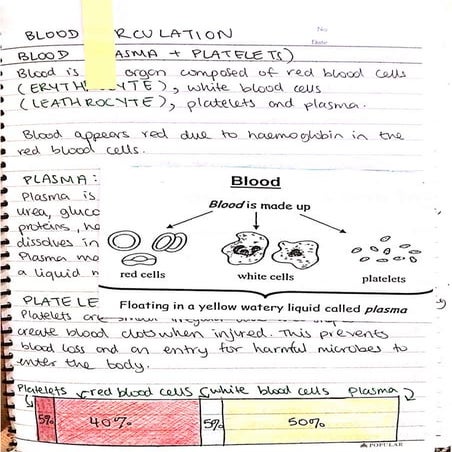 BLOOD RCULATION
No
Date
BLOOD ASMA + PLATELETS)
Blood is organ composed of red blood cells
(ERYTH YTE), white blood cells
(LEATHROCYTE), platelets and plasma.
Blood appears red due to haemoglobin in the
red blood cells.
PLASMA:
Plasma is
urea, gluco
proteins, ho
dissolves in
Plasma
a liquid
Blood
Blood is made up
red cells
white cells
platelets
Floating in a yellow watery liquid called plasma
PLATELE
Platelets are
create blood clots when injured. This prevents
blood loss and an entry for harmful microbes to
enter the body.
Platelets red blood cells white blood cells plasma
5% 40% 5% 50%
POPULAR